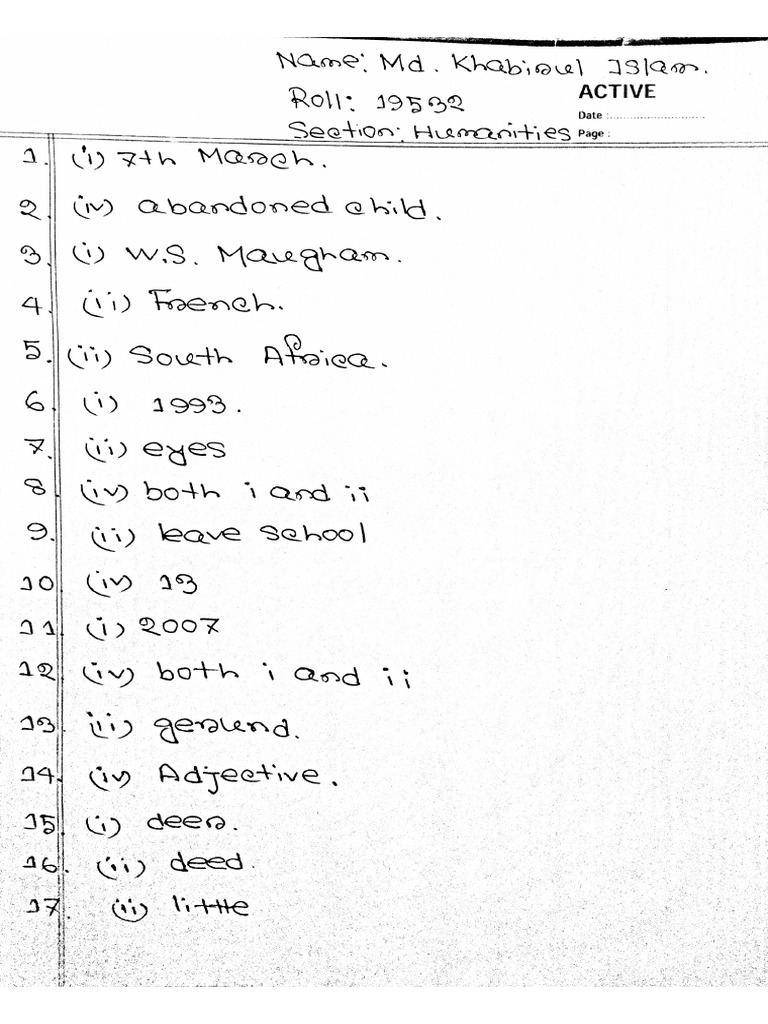 Name: Md. Khabirul Islam.
Roll: 19532
ACTIVE
Date :...........................
Section: Humanities
Page :
1. (i) 7th March.
2. (iv) abandoned child.
3. (i) W.S. Maugham.
4. (ii) French.
5. (ii) South Africa.
6. (i) 1993.
7. (ii) eyes
8. (iv) both i and ii
9. (ii) leave school
10 (iv) 13
11. (i) 2007
12. (iv) both i and ii
13. (ii) gerund.
14. (iv) Adjective.
15. (i) deer.
16. (ii) deed.
17. (ii) little